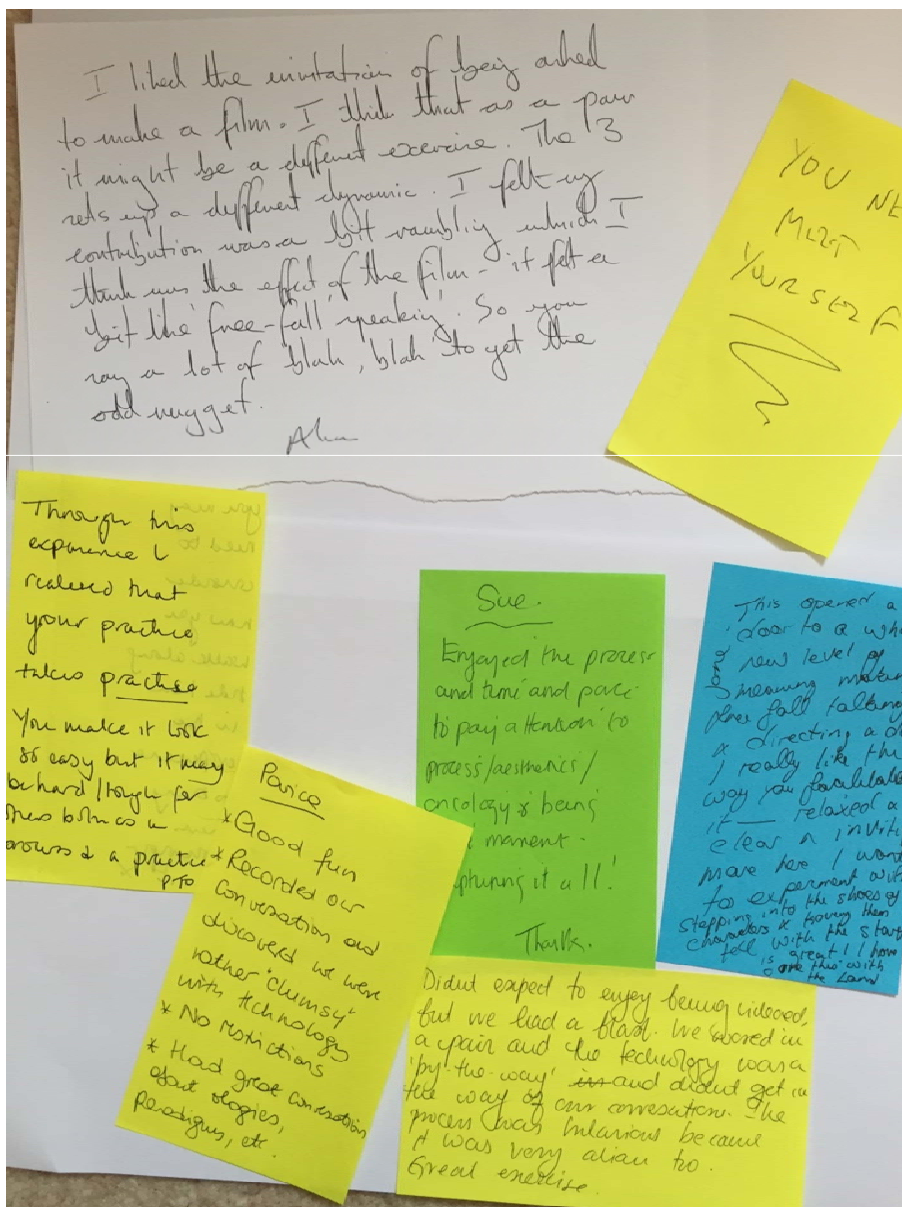 I liked the invitation of being asked
to make a film. I think that as a pair
it might be a different exercise. The 3
sets up a different dynamic. I felt my
contribution was a bit rambly which I
think was the effect of the film - it felt a
bit like 'free-fall speaking'. So you
say a lot of 'blah, blah' to get the
odd nugget.
YOU NE
MEET
YOURSELF
Through this
experience I
realised that
your practice
takes practise
You make it look
so easy but it may
be hard/tough for
a practice
PTO
you may
need to
consider
how you
walk along
Good fun
* Recorded our
conversation and
discovered we were
rather 'clumsy'
with technology
* No restrictions
* Had great conversation
about ologies,
Paradigms, etc.
Sue.
Enjoyed the process
and time and pace
to pay attention to
process/aesthetics/
ontology & being
moment.
pturing it all!
Thanks.
This opened a
door to a wh
new level of
meaning
free fall talking
& directing a d
I really like the
way you facilitate
it — relaxed a
clear & inviti
more here I want
to experiment wit
stepping into the shoes of
characters & having them
tell with the
is great! I have
done this with
the Land
Didnt expect to enjoy being videoed,
but we had a blast. We worked in
a pair and the technology was a
'by the way' and didnt get in
the way of our conversation. The
process was hilarious because
it was very alian to
Great exercise.